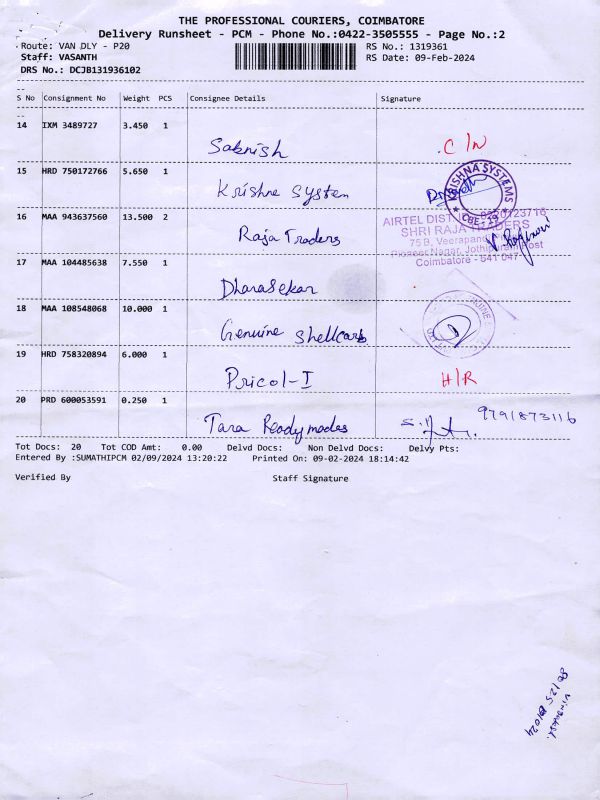 THE PROFESSIONAL COURIERS, COIMBATORE
Delivery Runsheet - PCM - Phone No.:0422-3505555 - Page No.:2
Route: VAN DLY - P20
RS No.: 1319361
Staff: VASANTH
RS Date: 09-Feb-2024
DRS No.: DCJB131936102
S No Consignment No Weight PCS Consignee Details Signature
14 IXM 3489727 3.450 1
Saknish C/N
15 HRD 750172766 5.650 1
Krishna System
KRISHNA SYSTEMS
* CBE-19 *
16 MAA 943637560 13.500 2
Raja Traders
AIRTEL DIST.
SHRI RAJA TRADERS
75 B, Veerapandi
Pioneer Nagar, Post
Coimbatore - 641 047
17 MAA 104485638 7.550 1
Dharasekar
18 MAA 108548068 10.000 1
Genuine Shellcarb
19 HRD 758320894 6.000 1
Pricol-I H/R
20 PRD 600053591 0.250 1
Tara Readymades 9791873116
Tot Docs: 20 Tot COD Amt: 0.00 Delvd Docs: Non Delvd Docs: Delvy Pts:
Entered By :SUMATHIPCM 02/09/2024 13:20:22 Printed On: 09-02-2024 18:14:42
Verified By Staff Signature